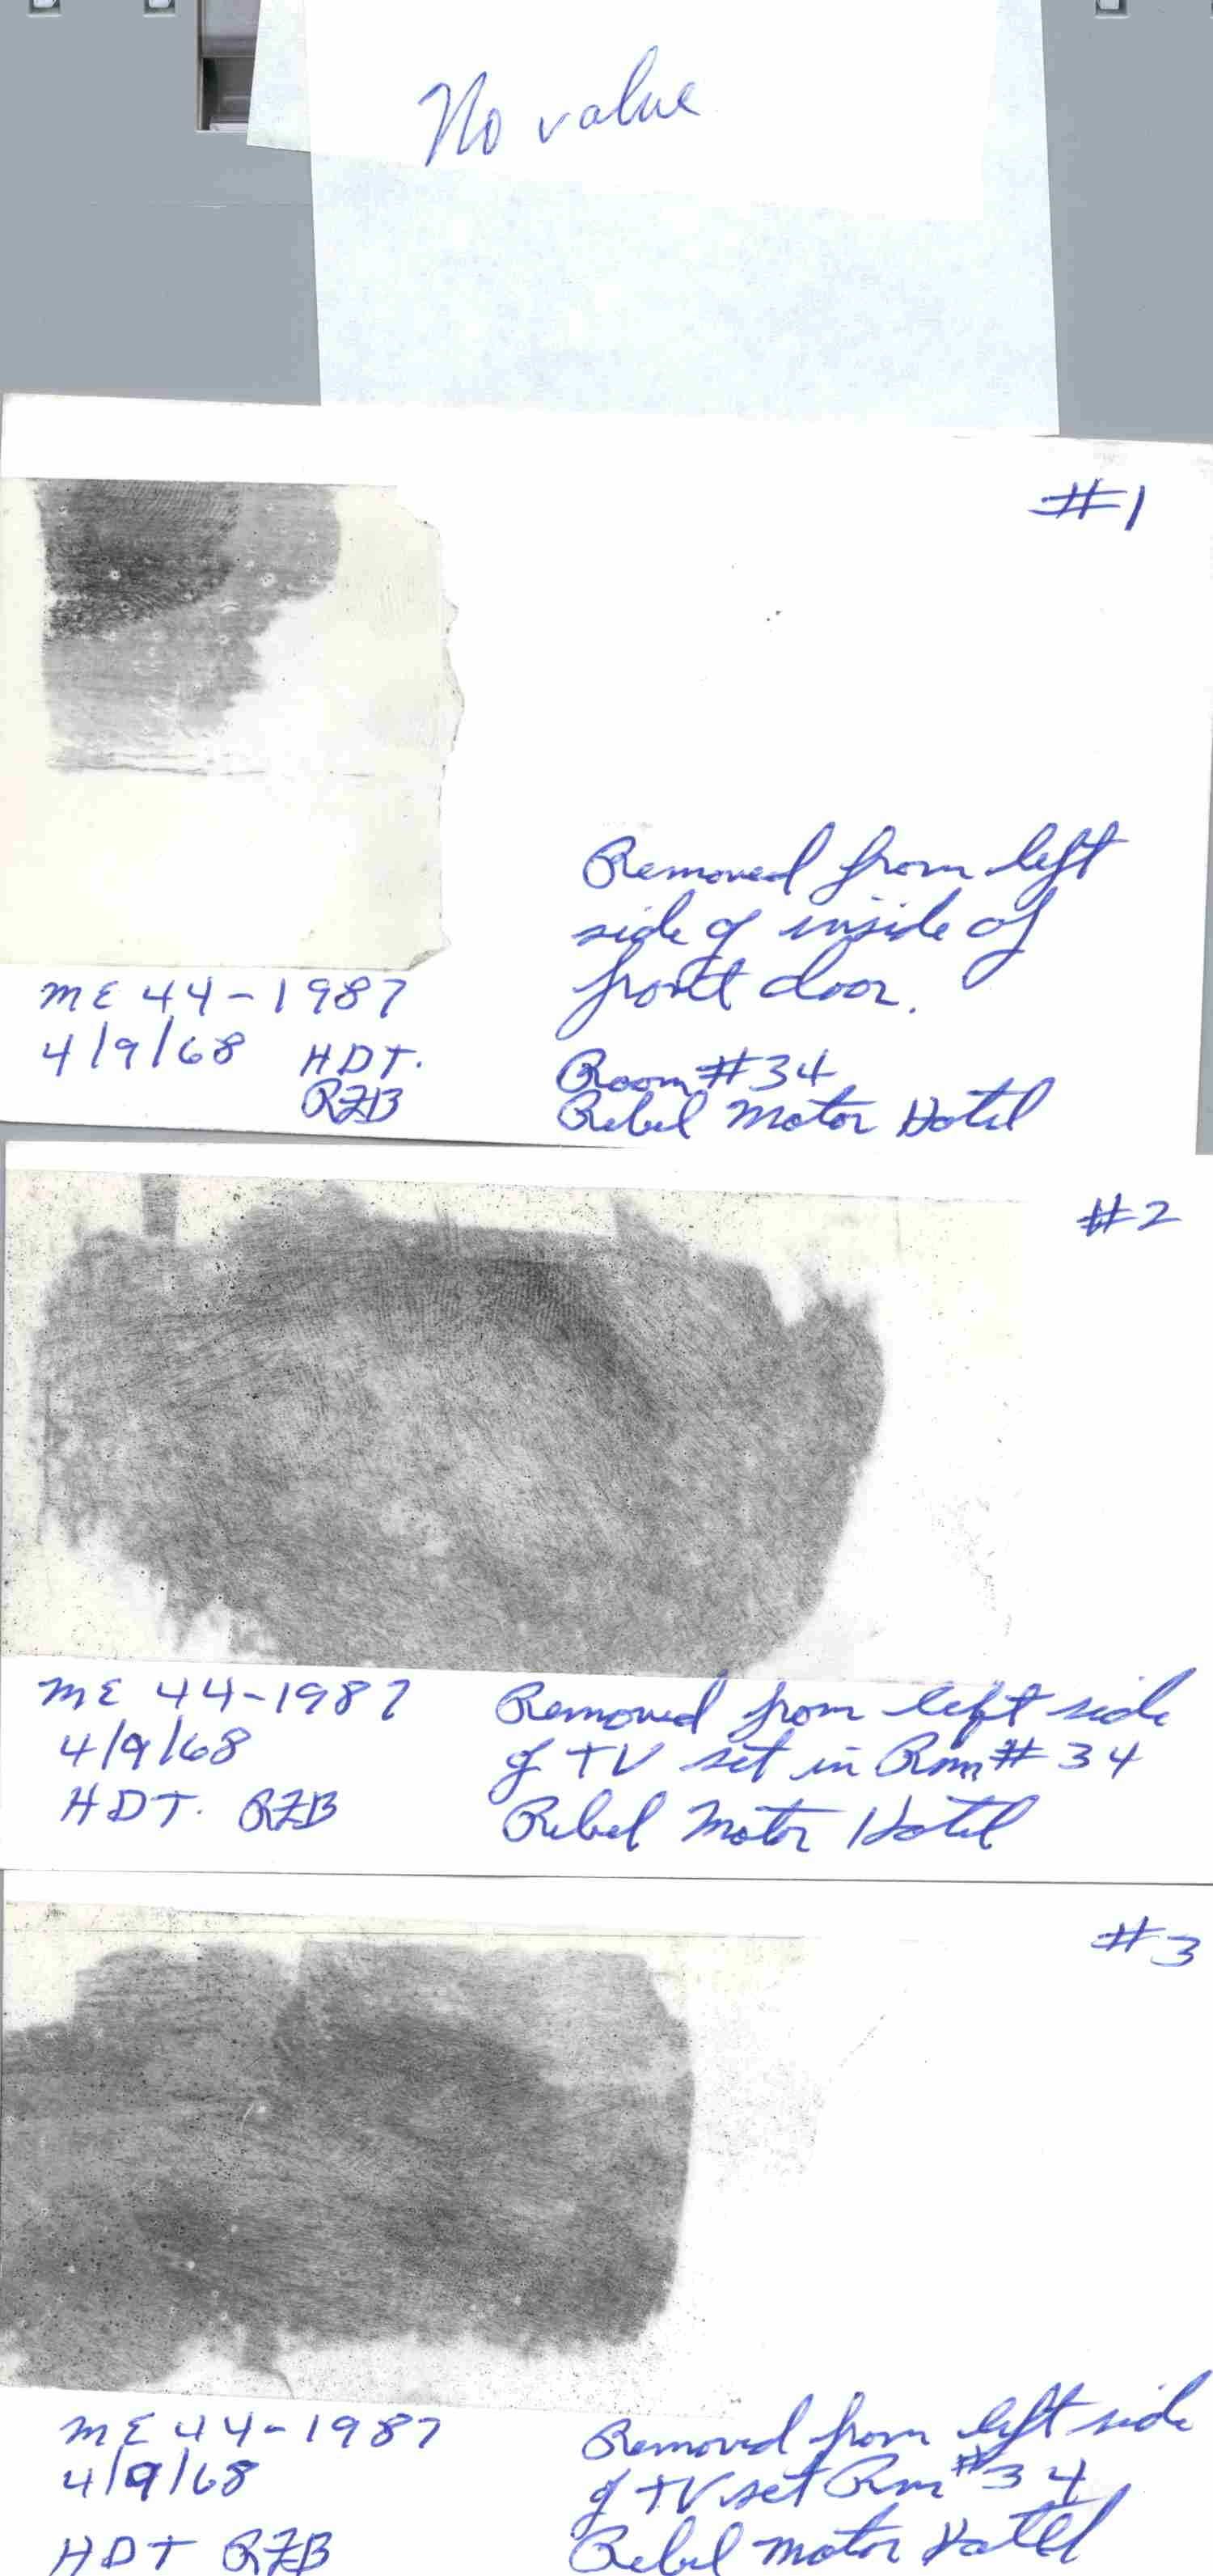 No value
#1
Removed from left
side of inside of
front door.
ME 44-1987
4/9/68 HDT.
RZB
Room #34
Rebel Motor Hotel
#2
ME 44-1987
4/9/68
HDT. RZB
Removed from left side
of TV set in Rm # 34
Rebel Motor Hotel
#3
ME 44-1987
4/9/68
HDT RZB
Removed from left side
of TV set Rm #34
Rebel Motor Hotel